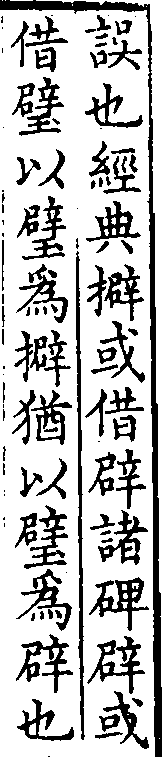 誤也經典擗或借辟諸碑辟或
借璧以璧爲擗猶以璧爲辟也